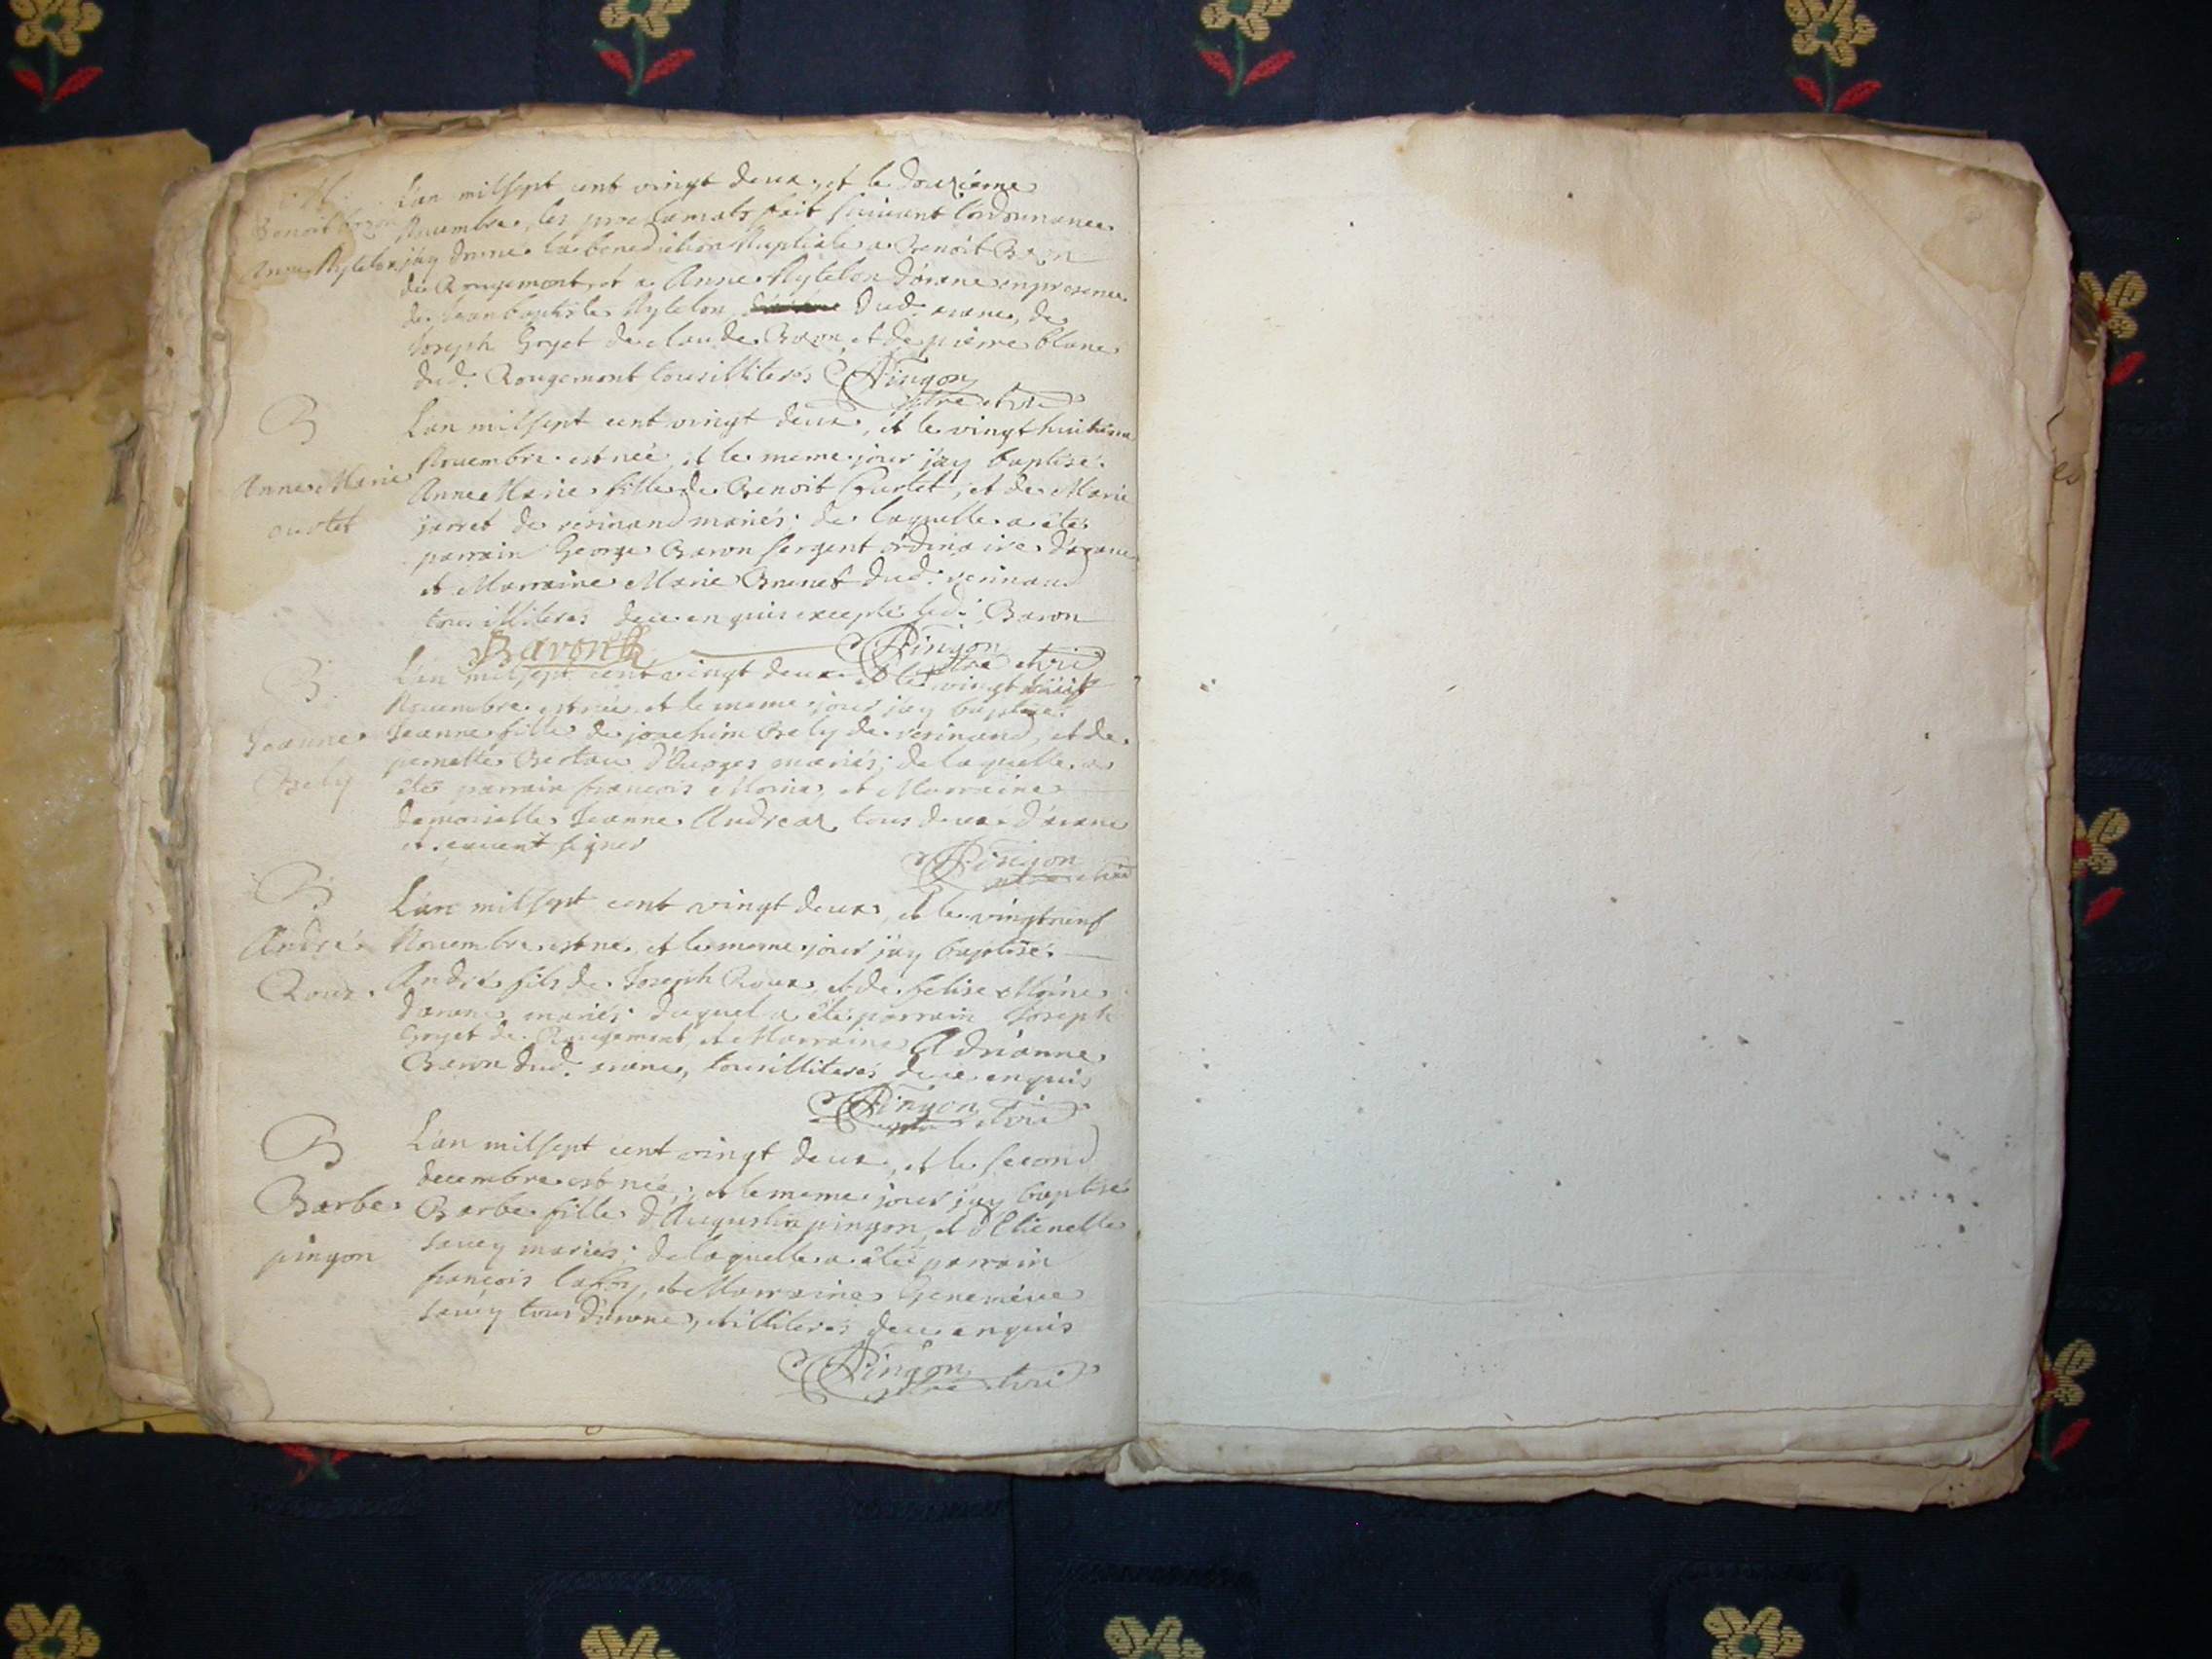 M.
Benoit Bozon
Anne Nyleton
L'an mil sept cent vingt deux, et le douzieme
Novembre, les proclamats fait suivant l'ordonnance
j'ay donné la benediction Nuptiale a Benoit Bozon
de Rougemont, et a Anne Nyleton d'arane en presence
de Jean baptiste Nyleton dud. arane, de
Joseph Goyet de claude Bozon, et de pierre blanc
dud. Rougemont tous illiterés Pingon
ptre et vic
B
Anne Marie
ourtet
L'an mil sept cent vingt deux, et le vingt huitieme
Novembre est née et le meme jour j'ay baptisé
Anne Marie fille de Benoit Ourtet, et de Marie
jarret de resinand mariés; de laquelle a été
parrain George Baron sergent ordinaire d'arane
et Marraine Marie Brunet dud. resinand
tous illiteres de ce enquis excepté led. Baron
Baron Pingon
ptre et vic
B
Jeanne
Bely
L'an mil sept cent vingt deux et le vingt huit
Novembre est née et le meme jour j'ay baptisé
Jeanne fille de joachim Bely de resinand, et de
pernette d'Euoges mariés; de laquelle a
été parrain françois Moine, et Marraine
demoiselle Jeanne Andrea tous deux d'arane
et signer
Pingon
ptre et vic
B
André
Roux
L'an mil sept cent vingt deux, et le vingt neuf
Novembre est né et le meme jour j'ay baptisé
André fils de Joseph Roux, et de felise Moine
d'arane mariés; duquel a été parrain Joseph
Goyet de Rougemont, et Marraine Adrianne
Baron dud. arane, tous illiterés de ce enquis
Pingon
ptre et vic
B
Barbe
pingon
L'an mil sept cent vingt deux, et le second
decembre est née; et le meme jour j'ay baptisé
Barbe fille d'Augustin pingon, et d'Etienette
savey mariés; de laquelle a été parrain
françois, et Marraine Genevieve
savey tous d'arane, et illiterés de ce enquis
Pingon
ptre et vic